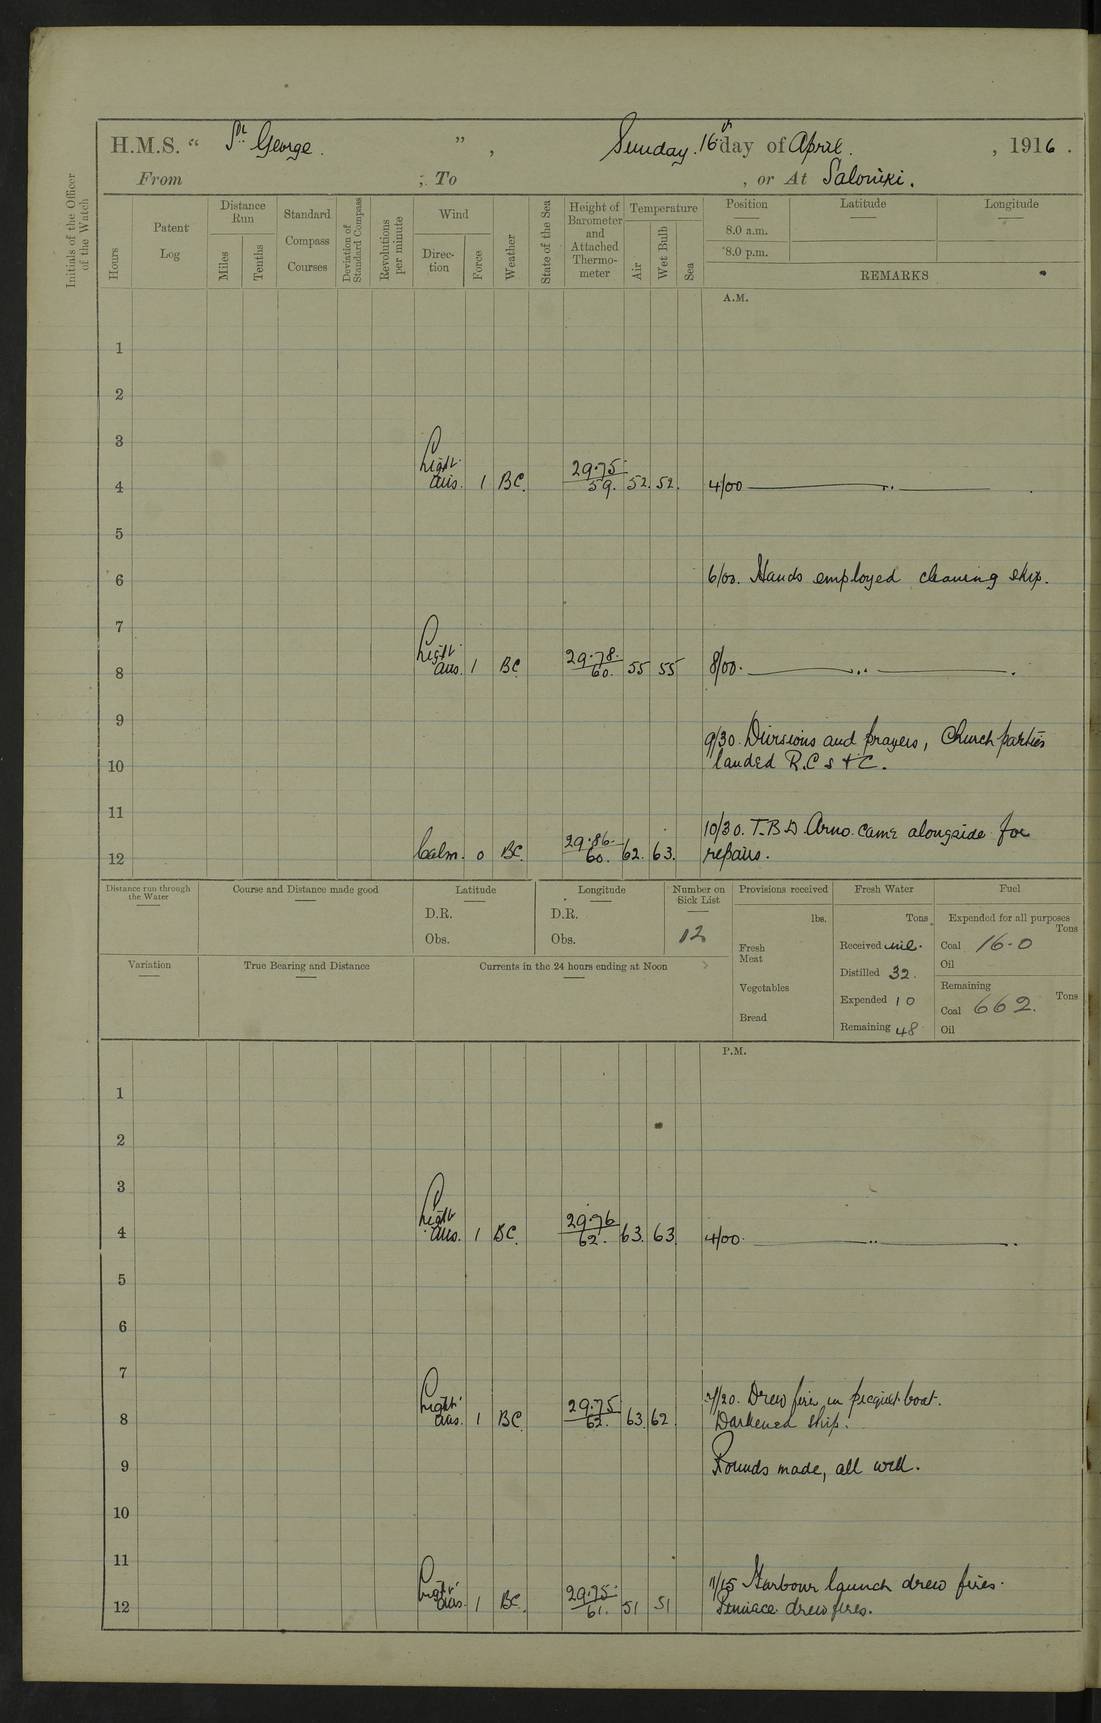 H.M.S. " St George. ", Sunday. 16th day of April. , 1916.
From ; To , or At Saloniki.
Initials of the Officer of the Watch
Hours
Patent Log
Distance Run
Miles
Tenths
Standard Compass Courses
Deviation of Standard Compass
Revolutions per minute
Wind
Direction
Force
Weather
State of the Sea
Height of Barometer and Attached Thermometer
Temperature
Air
Wet Bulb
Sea
Position
8.0 a.m.
8.0 p.m.
Latitude
Longitude
REMARKS
A.M.
1
2
3
4 Light airs. 1 BC. 29.75 59. 52. 52. 4/00
5
6 6/00. Hands employed cleaning ship.
7
8 Light airs. 1 BC 29.78. 60. 55 55 8/00.
9 9/30. Divisions and prayers, Church parties
10 landed R.C s & C.
11 10/30. T.B.D Arno. came alongside for
12 Calm. 0 BC. 29.86. 60. 62. 63. repairs.
Distance run through the Water
Course and Distance made good
Latitude
D.R.
Obs.
Longitude
D.R.
Obs.
Number on Sick List
12
Provisions received
lbs.
Fresh Meat
Vegetables
Bread
Fresh Water
Tons
Received nil.
Distilled 32.
Expended 10
Remaining 48
Fuel
Expended for all purposes
Tons
Coal 16-0
Oil
Remaining
Tons
Coal 662.
Oil
Variation
True Bearing and Distance
Currents in the 24 hours ending at Noon
P.M.
1
2
3
4 Light airs. 1 BC. 29.76 62. 63. 63 4/00.
5
6
7 7/20. Drew fires in picquet boat.
8 Light airs. 1 BC 29.75 62. 63. 62. Darkened ship.
9 Rounds made, all well.
10
11 11/15 Harbour launch drew fires.
12 Light airs. 1 BC. 29.75. 61. 51 51 Pinnace drew fires.